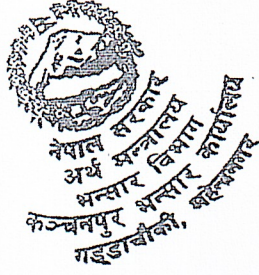 नेपाल सरकार
अर्थ मन्त्रालय
भन्सार विभाग
कञ्चनपुर भन्सार कार्यालय
गड्डाचौकी, महेन्द्रनगर